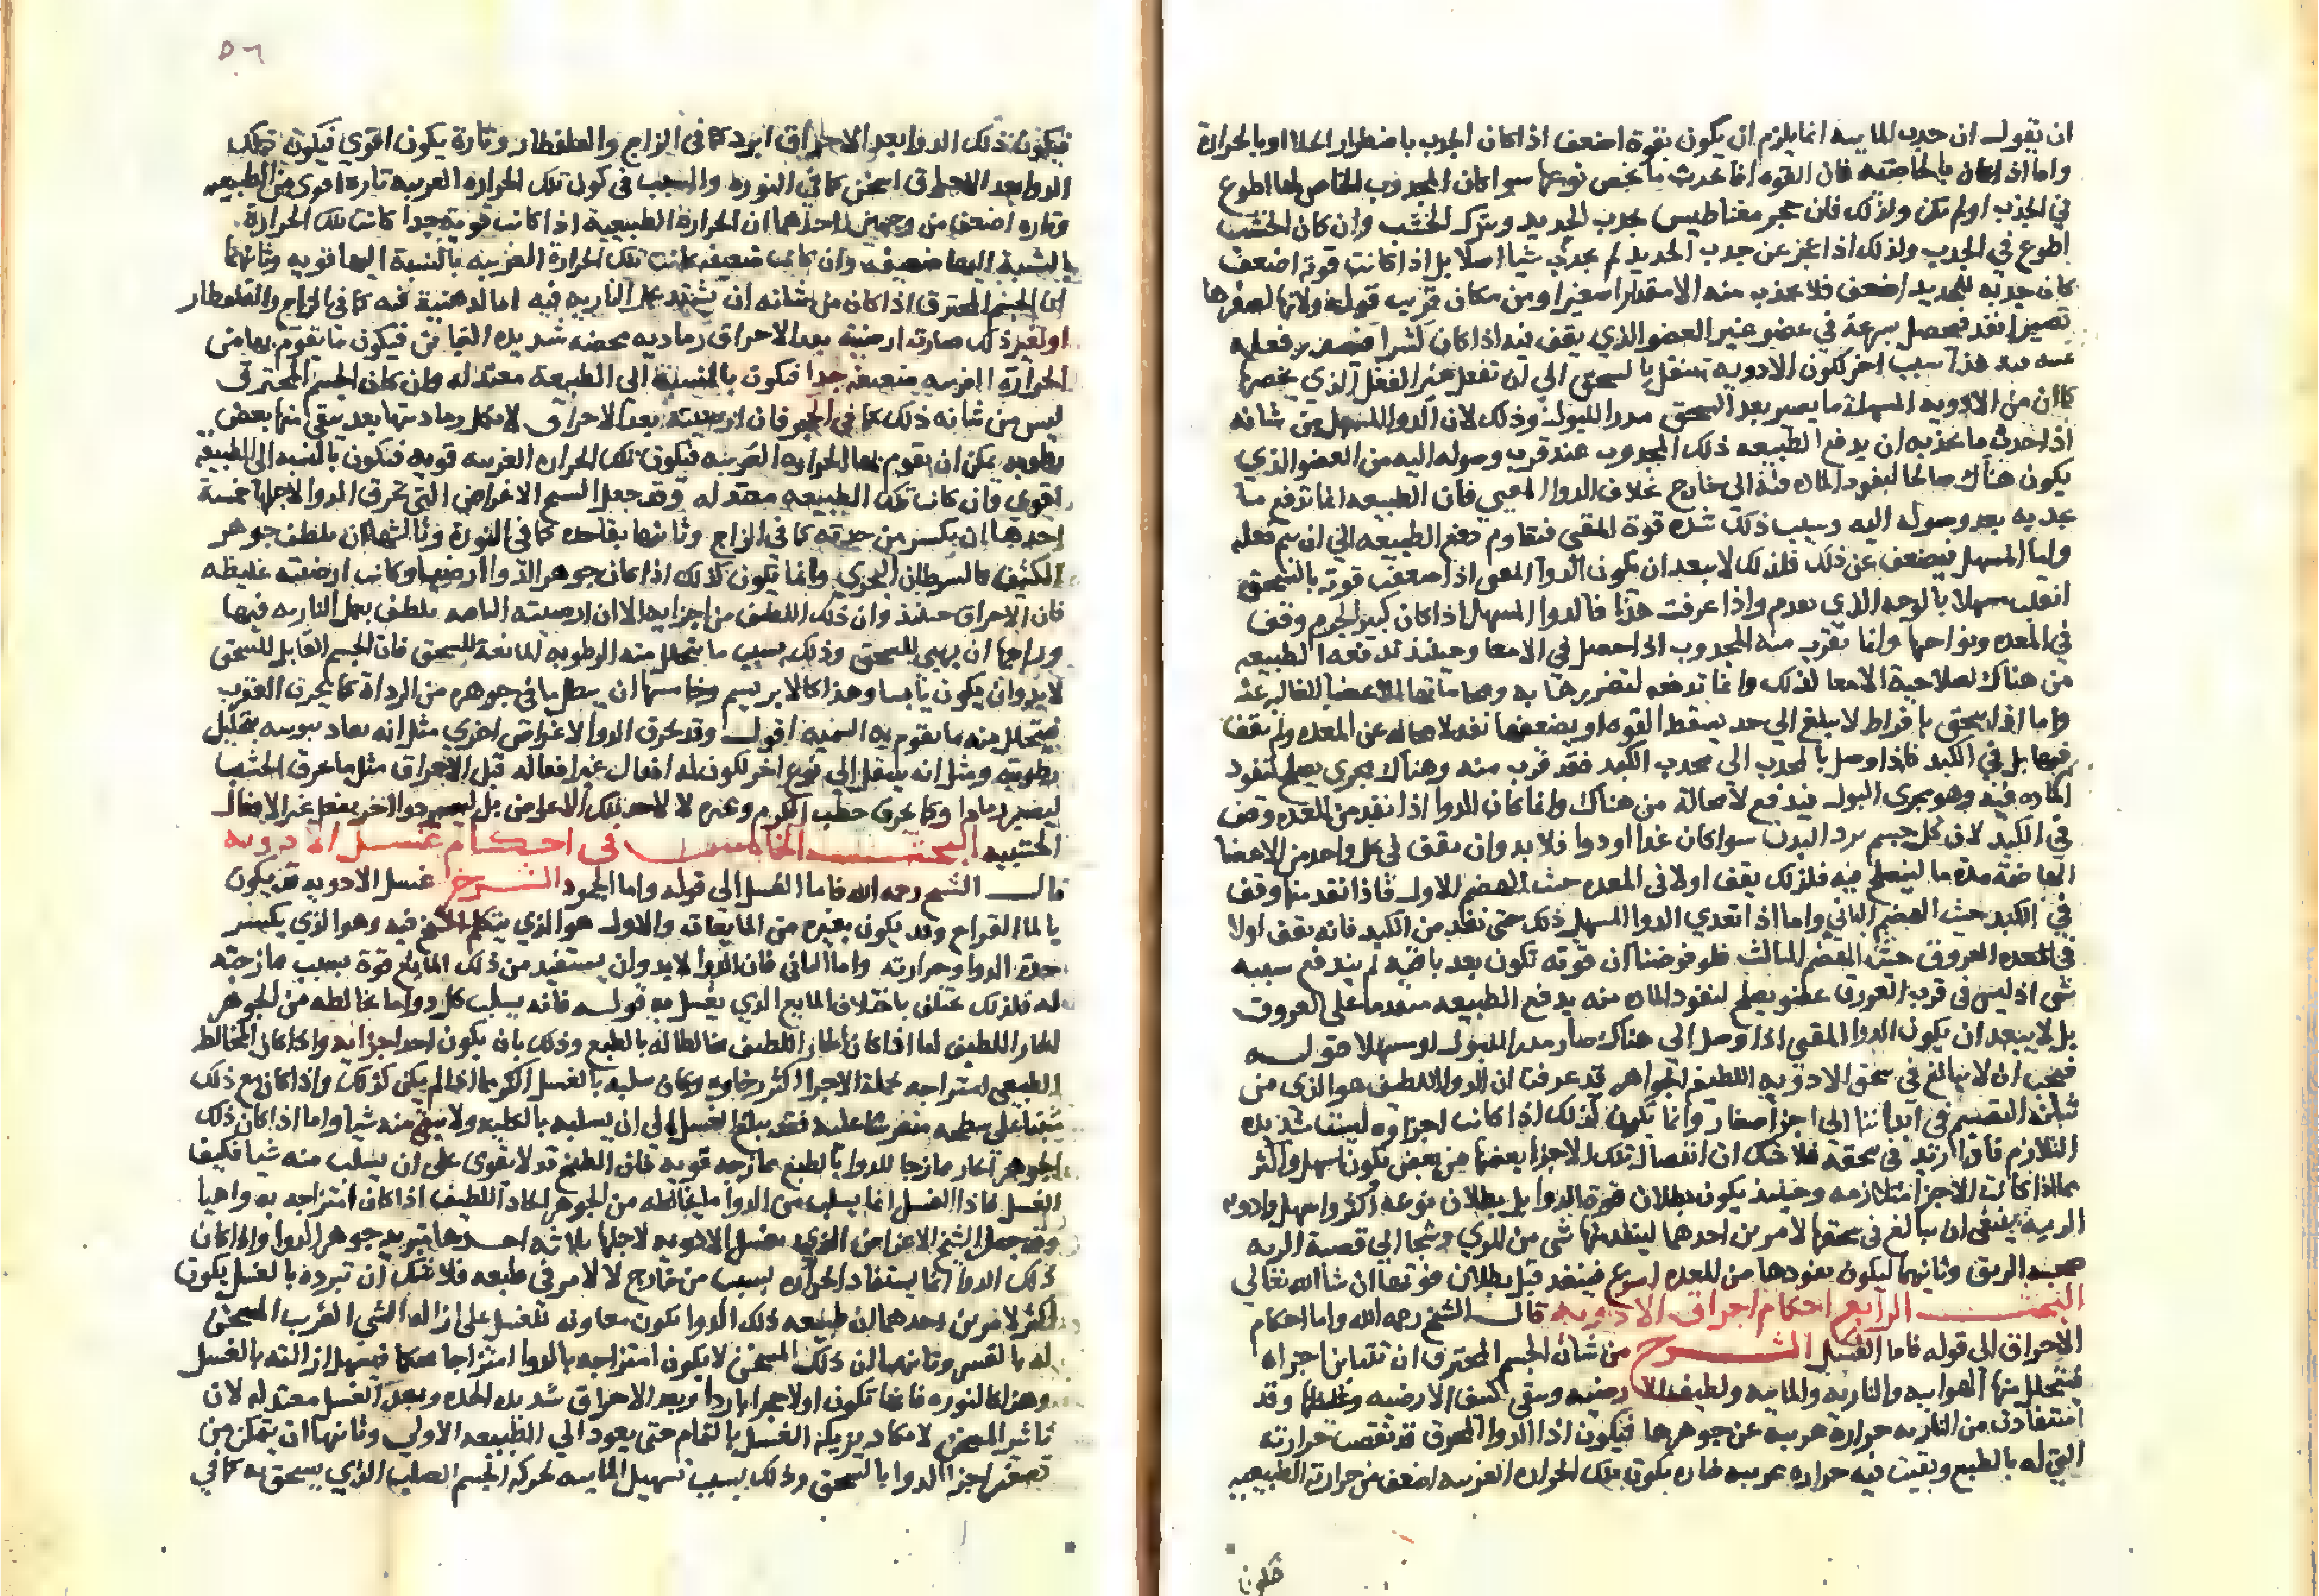 ان يقول ان جدب المايية انما يلزم ان يكون بقوة اضعف اذا كان الجدب باضطرار الخلا او بالحرارة
واما اذا كان بالخاصية فان القوة انما تحدث ما يخص نوعها سوا كان المجدوب الخاص لها اطوع
في الجذب او لم تكن ولذلك فان حجر مغناطيس يجدب الحديد ويترك الخشب وان كان الخشب
اطوع في الجدب ولذلك اذا عجز عن جدب الحديد لم يجدب شيا اصلا بل اذا كانت قوته اضعف
كان جدبه للحديد اضعف فلا يجذب منه الا مقدارا صغيرا ومن مكان قريب قوله ولانها لصغرها
تصير انفد فيحصل بسرعة في عضو غير العضو الذي يقف فيه اذا كان كبيرا فيصدر فعله
هذا سبب اخر لكون الادوية تنتقل بالسحق الي ان تفعل غير الفعل الذي يخصها
كما ان من الادويه المسهلة ما يصير بعد السحق مدرا للبول وذلك لان الدوا المسهل من شانه
اذا حدث ما يجذبه ان يدفع الطبيعه ذلك المجدوب عند قرب وصوله اليه من العضو الذي
يكون هناك صالحا لنفود الماده منه الي خارج بخلاف الدوا المقيي فان الطبيعه انما تدفع ما
يجدبه بعد وصوله اليه وسبب ذلك شده قوة المقيي فتقاوم دفع الطبيعه الي ان يتم فعله
واما المسهل فيضعف عن ذلك فلذلك لا يبعد ان يكون الدوا المقيي اذا ضعفت قوته بالسحق
انقلب مسهلا بالوجه الذي تقدم واذا عرفت هذا فالدوا المسهل اذا كان كبير الجرم وقف
في المعده ونواحيها وانما يقرب منه المجدوب اذا حصل في الامعا وحينئذ تدفعه الطبيعه
من هناك لصلاحية الامعا لذلك وانما تدفعه لتضررها به وحمايتها للاعضا الغاليه عنه
واما اذا سحق بافراط لا يبلغ الي حد يسقط القوه او يضعفها نفد لا محاله عن المعده ولم يقف
فيها بل في الكبد فاذا وصل بالجدب الي محدب الكبد فقد قرب منه وهناك مجري يصلح لنفود
الماده فيه وهو مجري البول فيدفع لا محالة من هناك وانما كان الدوا اذا نفد من المعده وقف
في الكبد لان كل جسم يرد البدن سوا كان غدا او دوا فلا بد وان يقف في كل واحد من الاعضا
الهاضمة مدة ما لينهضم فيه فلذلك يقف اولا في المعده حيث الهضم الاول فاذا نفد منها وقف
في الكبد حيث الهضم الثاني واما اذا تعدي الدوا المسهل ذلك حتى نفد من الكبد فانه يقف اولا
في العروق حيث الهضم الثالث فلو فرضنا ان قوته تكون بعد باقية لم يندفع بسببه
شي اذ ليس في قرب العروق عضو يصلح لنفود الماده منه يدفع الطبيعه مندفعا علي العروق
بل لا يبعد ان يكون الدوا المقيي اذا وصل الي هناك صار مدرا للبول او مسهلا قوله
فيجب ان لا يبالغ في سحق الادويه اللطيفة الجواهر قد عرفت ان الدوا اللطيف هو الذي من
شانه التقسم في ابداننا الي اجزا صغار وانما يكون كذلك اذا كانت اجزاوه ليست شديده
التلازم فاذا ازيد في سحقه فلا شك ان انفصال تلك الاجزا بعضها من بعض يكون اسهل واكثر
مما اذا كانت الاجزا متلازمه وحينئذ يكون بطلان قوة الدوا بل بطلان نوعه اكثر واسهل وادويه
الريه ينبغي ان يبالغ في سحقها لامرين احدهما لينفد منها شي من المري وشيكا الي قصبة الريه
الريق وثانيهما ليكون نفودها من المعده اسرع فينفد قبل بطلان قوتها ان شا الله تعالي
البحث الرابع احكام احراق الادويه قال الشيخ رحمه الله واما احكام
الاحراق الى قوله فاما الغسل الشرح من شان الجسم المحترق ان تتباين اجزاه
فيتحلل منها الهواييه والناريه والماييه ولطيف الارضيه ويبقي كثيف الارضيه وغليظها وقد
استفادت من الناريه حرارة غريبه عن جوهرها فيكون اذا الدوا المحرق قد نقصت حرارته
التي له بالطبع وبقيت فيه حراره غريبه فتاره يكون تلك الحراره الغريبه اضعف من حرارته الطبيعيه
فتكون
٥٦
فيكون ذلك الدوا بعد الاحراق ابرد كما في الزاج والقلقطار وتارة يكون اقوي فيكون ذلك
الدوا بعد الاحتراق اسخن كما في النوره والسبب في كون تلك الحراره الغريبه تارة اقوي من الطبيعيه
وتاره اضعف من وجهين احدهما ان الحرارة الطبيعية اذا كانت قويه جدا كانت تلك الحرارة
بالنسبة اليها ضعيفه وان كانت ضعيفه كانت تلك الحرارة الغريبه بالنسبة اليها قويه وثانيهما
ان الجسم المحترق اذا كان من شانه ان يشتد عمل الناريه فيه اما لدهنية فيه كما في الزاج والقلقطار
او لغير ذلك صارت ارضيته بعد الاحراق رماديه محضه شديده التفاني فيكون ما يقوم بها من
الحرارة الغريبه ضعيفه جدا فيكون بالنسبة الي الطبيعة معتدله وان كان الجسم المحترق
ليس من شانه ذلك كما في الحجر فان ارضيته بعد الاحراق لا يكمل رماديتها بعد يبقي منها بعض
رطوبه يمكن ان يقوم بها الحراره الغريبه فيكون تلك الحراره الغريبه قويه فتكون بالنسبه الي الطبيعه
اقوي وان كانت تلك الطبيعه معتدله وقد جعل الشيخ الاغراض التي تحرق الدوا لاجلها خمسة
احدها ان يكسر من حدته كما في الزاج وثانيها يفاد حده كما في النورة وثالثها ان يلطف جوهر
الكثيف كالسرطان البحري وانما يكون كذلك اذا كان جوهر الدوا ارضيا وكانت ارضيته غليظه
فان الاحراق حينئذ وان ذلك اللطيف من اجزايه الا ان ارضيته الباقيه يلطف بعمل الناريه فيها
ورابعها ان يهيي للسحق وذلك بسبب ما يتحلل منه الرطوبه المانعة للسحق فان الجسم القابل للسحق
لا بد وان يكون يابسا وهذا كالابريسم وخامسها ان يبطل ما في جوهره من الرداة كما يحرق العقرب
فيتحلل منه ما يقوم به السميه اقول وقد يحرق الدوا لاغراض اخري مثل انه يفاد يبوسه بتحليل
رطوبته ومثل انه ينتقل الي نوع اخر لكون له افعال غير افعاله قبل الاحراق مثل ما يحرق الخشب
ليصير رمادا وكما يحرق حطب الكرم وغيره لا لاحد تلك الاغراض بل ليصير دوا اخر يفعل غير الافعال
الخشبيه البحث الخامس في احكام غسل الادويه
قال الشيخ رحمه الله فاما الغسل الى قوله واما الجمود الشرح غسل الادويه قد يكون
بالما القراح وقد يكون بغيره من المايعات والاول هو الذي يتكلم الشيخ فيه وهو الذي يكسر
حدة الدوا وحرارته واما الثاني فان الدوا لا بد وان يستفيد من ذلك المايع قوة بسبب ممازجته
له فلذلك يختلف باختلاف المايع الذي يغسل به قوله فانه يسلب كل دوا ما يخالطه من الجوهر
الحار اللطيف اما اذا كان الحار اللطيف مخالطا له بالطبع وذلك بان يكون احد اجزايه واذا كان المخالط
الطبيعي امتزاجه بجملة الاجزا اكثر رخاوه وكان سلبه بالغسل اكثر مما اذا لم يكن كذلك واذا كان مع ذلك
مثبتا علي سطحه منفرشا عليه فقد يبلغ الغسل الي ان يسلبه بالكليه ولا يبقي منه شيا واما اذا كان ذلك
الجوهر الحار ممازجا للدوا بالطبع ممازجه قويه فان الطبخ قد لا يقوي علي ان يسلب منه شيا فكيف
الغسل فاذا الغسل انما يسلب من الدوا ما يخالطه من الجوهر الحار اللطيف اذا كان امتزاجه به واهيا
وقد جعل الشيخ الاغراض الذي يغسل الادويه لاجلها ثلاثه احدها تبريد جوهر الدوا واذا كان
ذلك الدوا انما يستفاد الحراره لسبب من خارج لا لامر في طبعه فلا شك ان تبرده بالغسل يكون
اكثر لامرين احدهما ان طبيعه ذلك الدوا يكون معاونه للغسل علي ازالة الشي الغريب المسخن
له بالقسر وثانيهما ان ذلك المسخن لا يكون امتزاجه بالدوا امتزاجا محكما فيسهل ازالته بالغسل
وهذا كالنوره فانها تكون اولا حجرا باردا وبعد الاحراق شديده الحده وبعد الغسل معتدله لان
تاثير المسخن لا يكاد يزيله الغسل بالتمام حتي يعود الي الطبيعه الاولي وثانيها ان يتمكن من
تصغير اجزا الدوا بالسحق وذلك بسبب تسهيل الماييه لحركة الجسم الصلب الذي يسحق به كما في